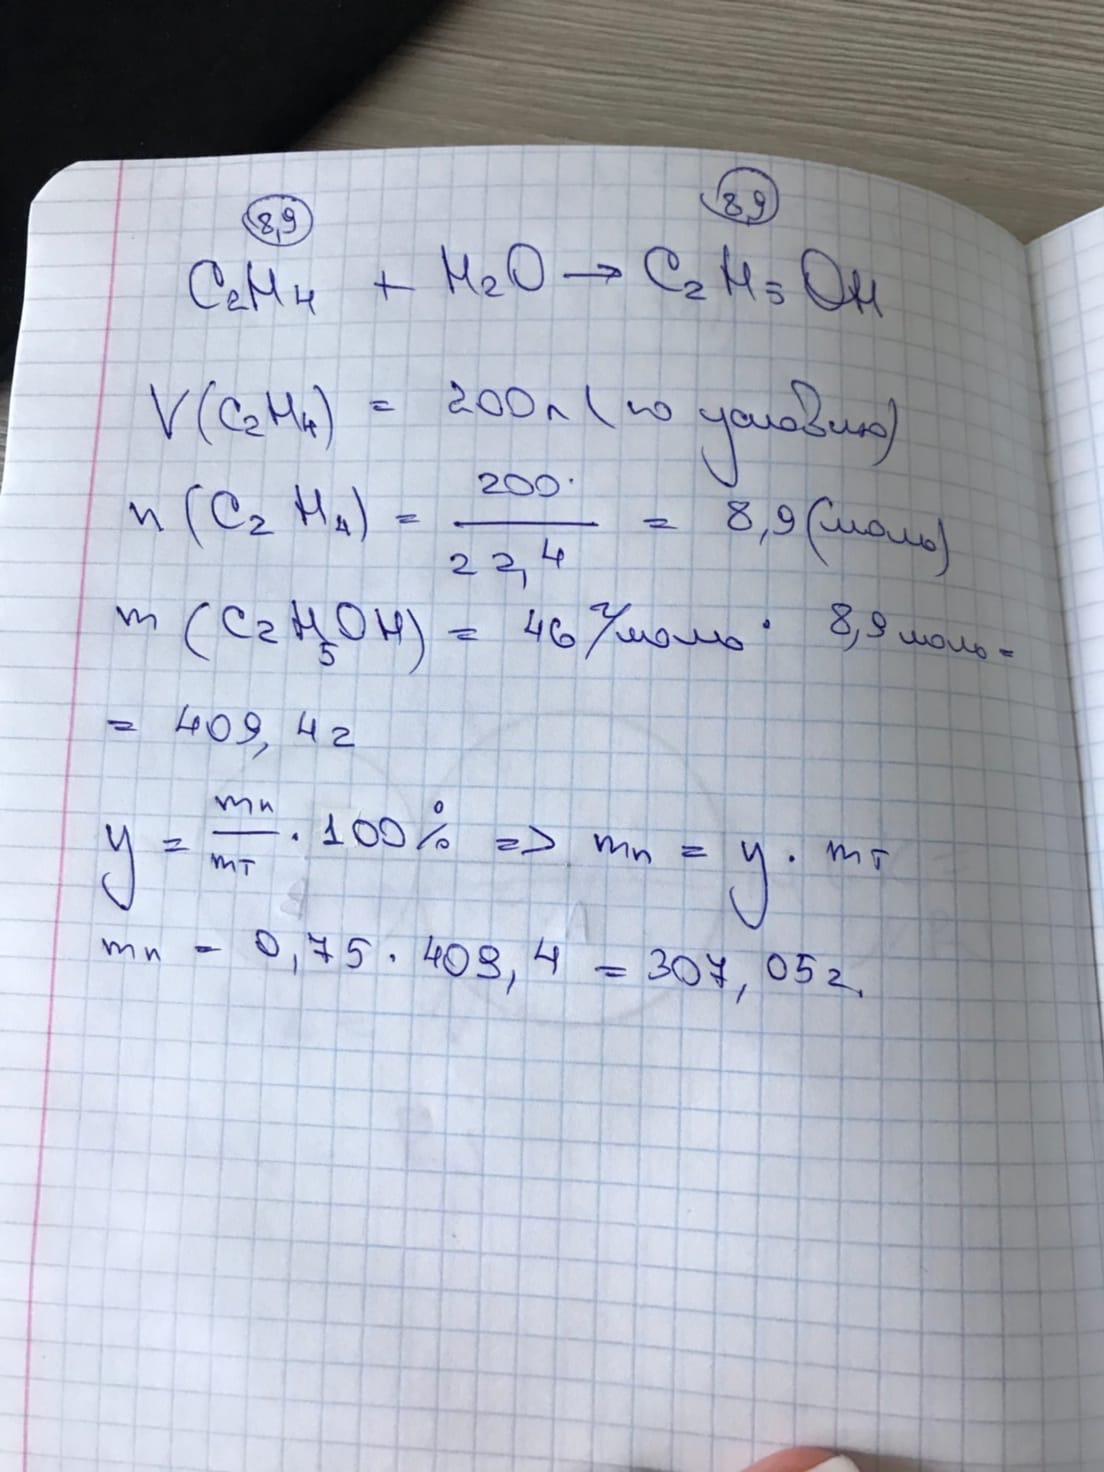 8,9 8,9
C₂H₄ + H₂O → C₂H₅OH
V(C₂H₄) = 200л (по условию)
n(C₂H₄) = 200/22,4 = 8,9 (моль)
m(C₂H₅OH) = 46 г/моль · 8,9 моль =
= 409,4 г
y = mп/mт · 100% => mп = y · mт
mп = 0,75 · 409,4 = 307,05 г.